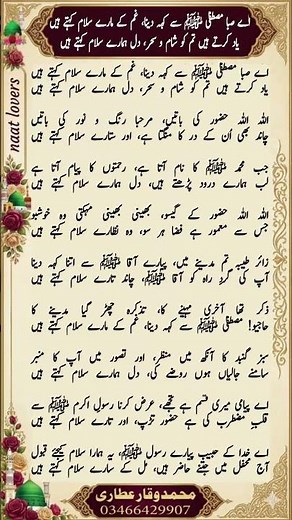 اے صبا مصطفٰی ﷺ سے کہہ دینا، غم کے مارے سلام کہتے ہیں
یاد کرتے ہیں تم کو شام و سحر، دل ہمارے سلام کہتے ہیں
اے صبا مصطفٰی ﷺ سے کہہ دینا، غم کے مارے سلام کہتے ہیں
یاد کرتے ہیں تم کو شام و سحر، دل ہمارے سلام کہتے ہیں
اللہ اللہ حضور کی باتیں، مرحبا رنگ و نور کی باتیں
چاند بھی اُن کے در کا منگتا ہے، اور ستارے سلام کہتے ہیں
جب محمد ﷺ کا نام آتا ہے، رحمتوں کا پیام آتا ہے
لب ہمارے درود پڑھتے ہیں، دل ہمارے سلام کہتے ہیں
اللہ اللہ حضور کے گیسو، بھینی بھینی مہکتی وہ خوشبو
جس سے معمور ہے فضا ہر سو، وہ نظارے سلام کہتے ہیں
زائر طیبہ تم مدینے میں، پیارے آقا ﷺ سے اتنا کہہ دینا
آپ کی گردِ راہ کو آقا ﷺ، چاند تارے سلام کہتے ہیں
ذکر تھا آخری مہینے کا، تذکرہ چھڑ گیا مدینے کا
حاجیو! مصطفٰی ﷺ سے کہہ دینا، غم کے مارے سلام کہتے ہیں
سبز گنبد کا آنکھ میں منظر، اور تصور میں آپ کا منبر
سامنے جالیاں ہوں روضے کی، دل ہمارے سلام کہتے ہیں
اے پیامی میری قسم ہے تجھے، عرض کرنا رسول اکرم ﷺ سے
قلب مضطرب کی ہے حضور تڑپ، اور تارے سلام کہتے ہیں
اے خدا کے حبیب پیارے رسول ﷺ، یہ ہمارا سلام کیجئے قبول
آج محفل میں جتنے حاضر ہیں، مل کے سارے سلام کہتے ہیں
محمد وقار عطاری
03466429907
naat lovers